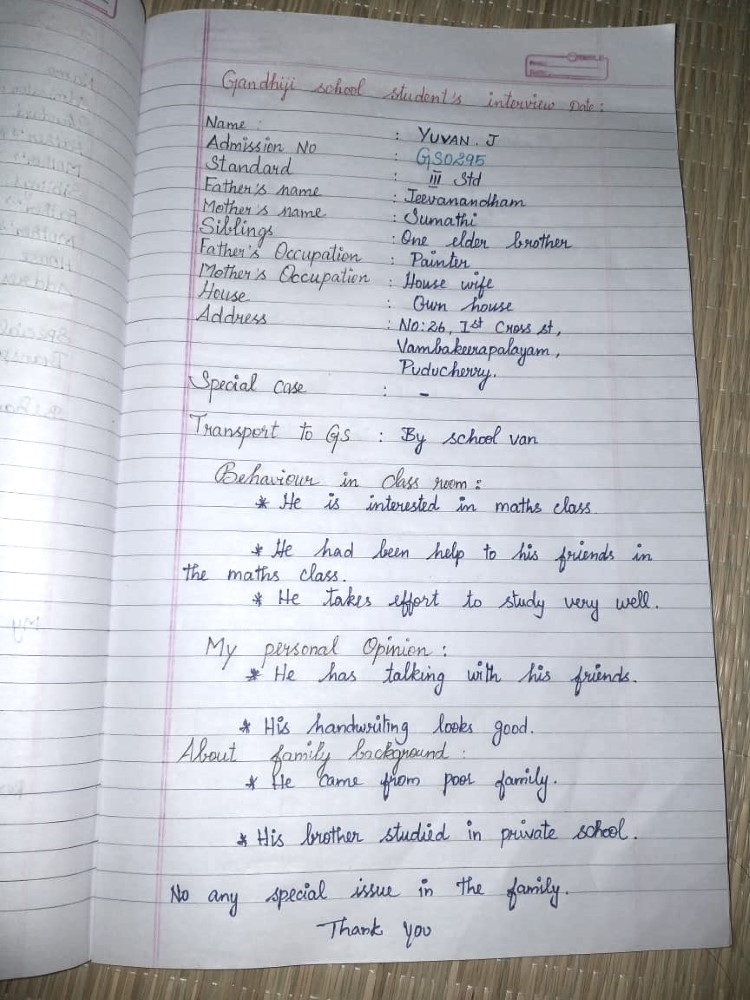 Gandhiji school student's interview Date:
Name :
: YUVAN. J
Admission No : GS0295
Standard : III Std
Father's name : Jeevanandham
Mother's name : Sumathi
Siblings : One elder brother
Father's Occupation : Painter
Mother's Occupation : House wife
House : Own house
Address : No:26, 1st Cross st,
Vambakeerapalayam,
Puducherry.
Special case : -
Transport to GS : By school van
Behaviour in class room :
* He is interested in maths class
* He had been help to his friends in
the maths class.
* He takes effort to study very well.
My personal Opinion :
* He has talking with his friends.
* His handwriting looks good.
About family background :
* He came from poor family.
* His brother studied in private school.
No any special issue in the family.
Thank you